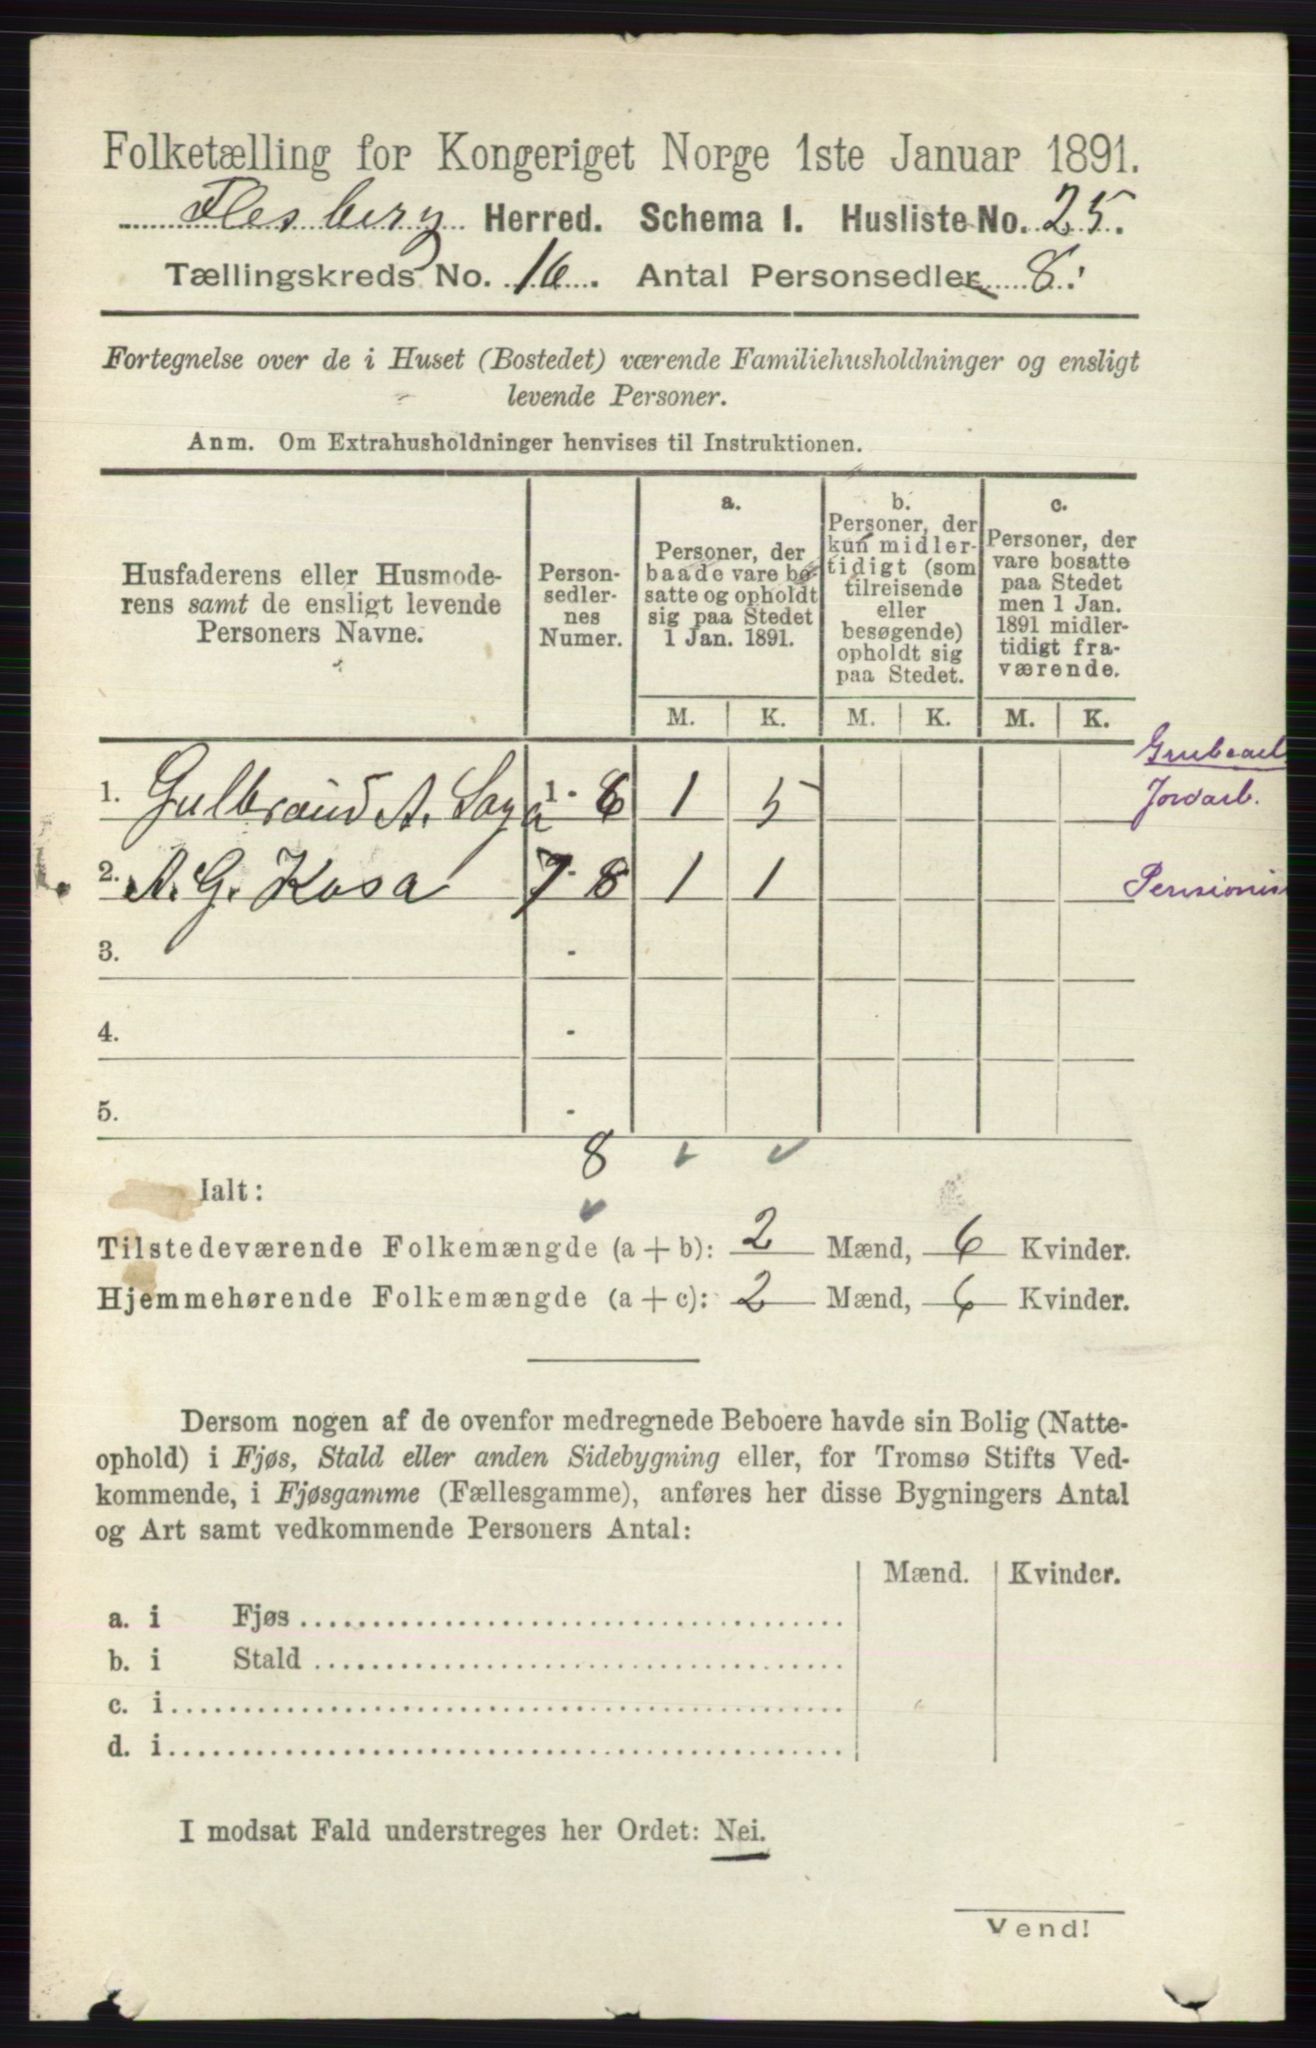 Folketælling for Kongeriget Norge 1ste Januar 1891.
Flesberg Herred. Schema I. Husliste No. 25.
Tællingskreds No. 16. Antal Personsedler 8.
Fortegnelse over de i Huset (Bostedet) værende Familiehusholdninger og ensligt
levende Personer.
Anm. Om Extrahusholdninger henvises til Instruktionen.
Husfaderens eller Husmode-
rens samt de ensligt levende
Personers Navne.
Person-
sedler-
nes
Numer.
a.
Personer, der
baade vare bo-
satte og opholdt
sig paa Stedet
1 Jan. 1891.
b.
Personer, der
kun midler-
tidigt (som
tilreisende
eller
besøgende)
opholdt sig
paa Stedet.
c.
Personer, der
vare bosatte
paa Stedet
men 1 Jan.
1891 midler-
tidigt fra-
værende.
M. K. M. K. M. K.
Grubearb
1. Gulbrand A. 1 - 6 1 5 Jordarb.
2. A. G. Kosa 7 - 8 1 1 Pensionis
3. -
4. -
5. -
8
Ialt:
Tilstedeværende Folkemængde (a + b): 2 Mænd, 6 Kvinder.
Hjemmehørende Folkemængde (a + c): 2 Mænd, 6 Kvinder.
Dersom nogen af de ovenfor medregnede Beboere havde sin Bolig (Natte-
ophold) i Fjøs, Stald eller anden Sidebygning eller, for Tromsø Stifts Ved-
kommende, i Fjøsgamme (Fællesgamme), anføres her disse Bygningers Antal
og Art samt vedkommende Personers Antal:
Mænd. Kvinder.
a. i Fjøs
b. i Stald
c. i
d. i
I modsat Fald understreges her Ordet: Nei.
Vend!